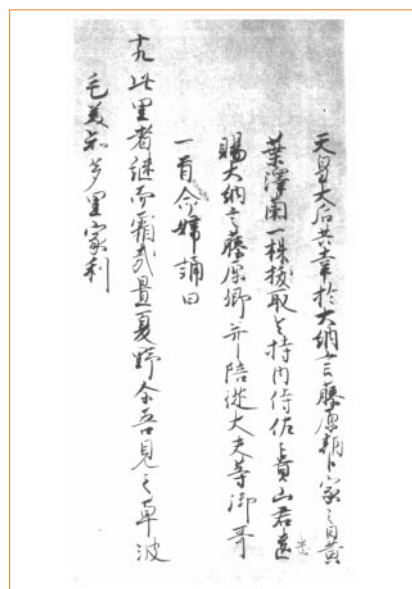 天皇大后共幸於大納言藤原朝臣家之日黄
葉澤蘭一株抜取令持内侍佐々貴山君遣
賜大納言藤原卿并陪従大夫等御哥
一首命婦誦曰
十九此里者継而霜哉置夏野尓吾見之草波
毛美知多里家利